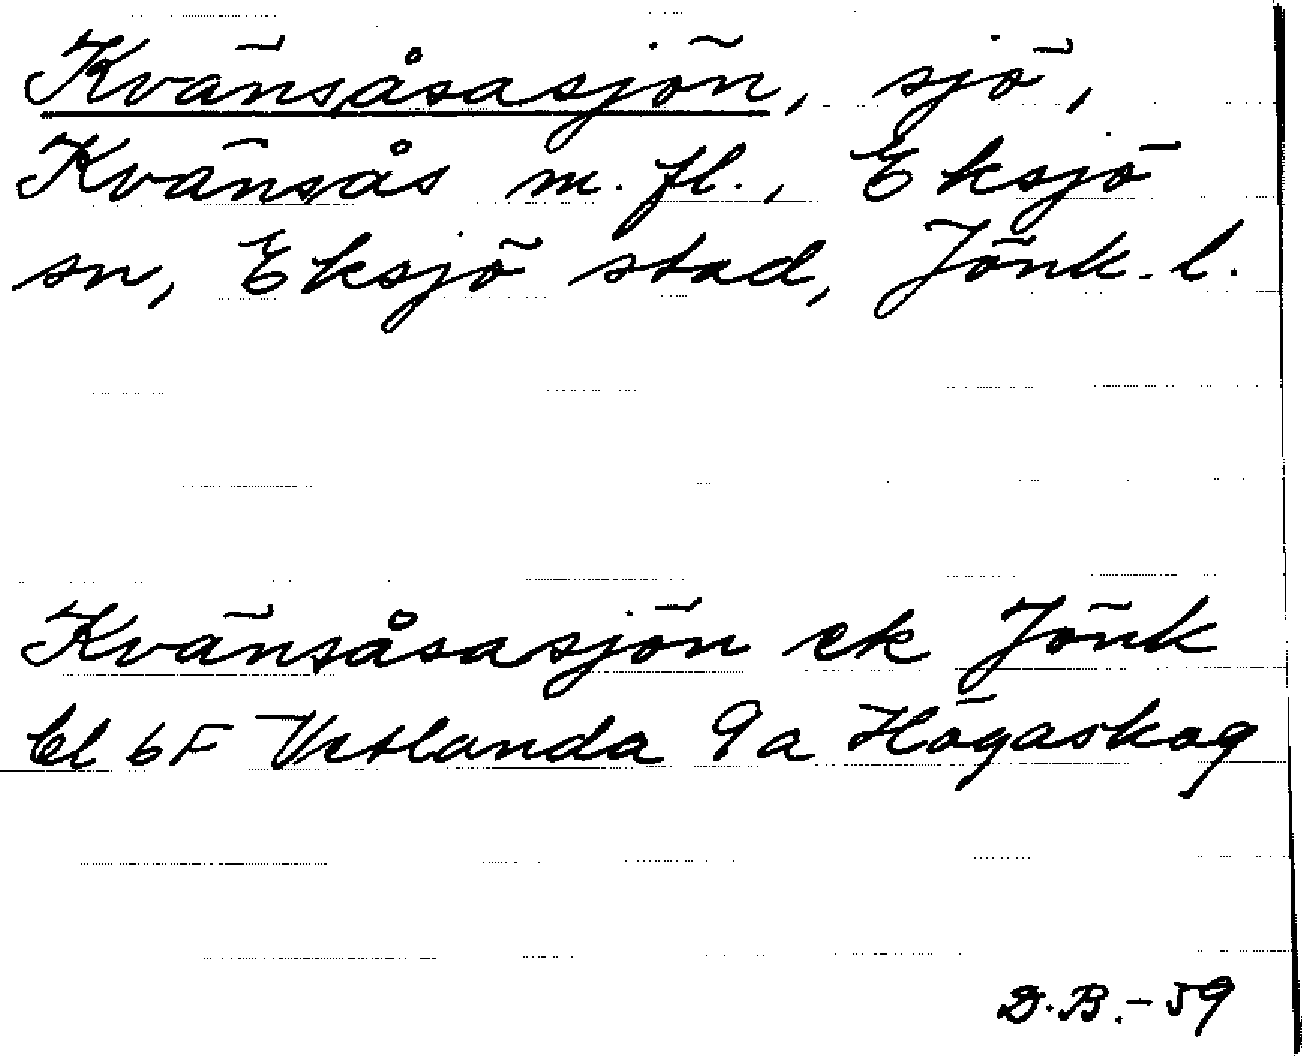 Kvänsåsasjön, sjö,
Kvänsås m. fl., Eksjö
sn, Eksjö stad, Jönk. l.
Kvänsåsasjön ek Jönk
bl 6F Vetlanda 9a Högaskog
D.B.-59